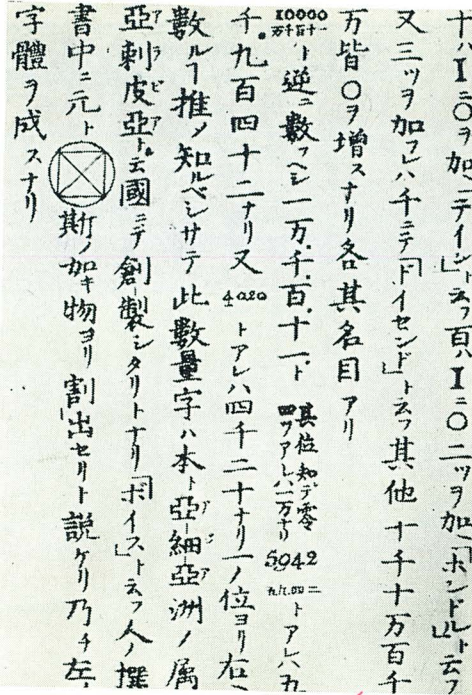 十ハIニ〇ヲ加「テイン」ト云フ百ハIニ〇二ツヲ加「ホンドルト」云フ
又三ツヲ加フレハ千ニテ「ドイセンド」ト云フ其他十千十万百千
万皆〇ヲ增スナリ各其名目アリ
10000 万千百十一 ト逆ニ數フヘシ一万.千.百.十一.ト 其位知テ零四ツアレハ一万ナリ 5942 九.九.四.二 トアレハ五
千.九百四十二ナリ又 4020 トアレハ四千二十ナリ一ノ位ヨリ右ヘ
數ルヿ推ノ知ルベシサテ此數量字ハ本ト亞細亞洲ノ属
亞剌皮亞ト云國ニテ創製シタリトナリ「ボイスト」云フ人ノ撰
書中ニ元ト 斯ノ加キ物ヨリ割出セリト説ケリ乃チ左ノ
字體ヲ成スナリ